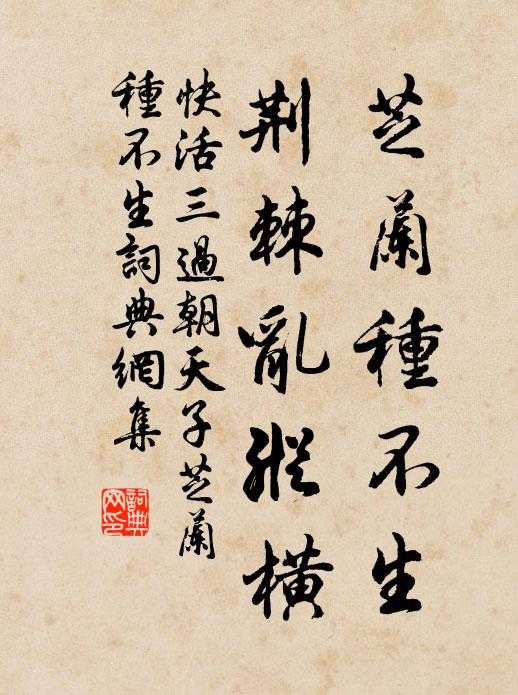 芝蘭種不生
荆棘亂縱橫
快活三過朝天子芝蘭
種不生詞典網集
詞典
网印